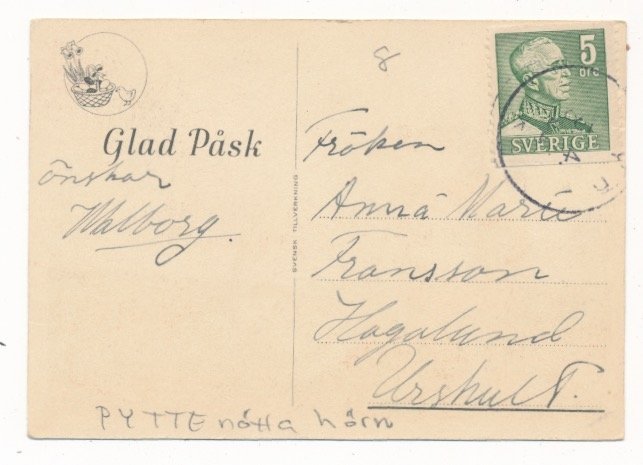 8
5
öre
SVERIGE
Glad Påsk
önskar
Walborg.
SVENSK TILLVERKNING
Fröken
Anna Marie
Fransson
Hagalund
Urshult.
PYTTE nötta hörn